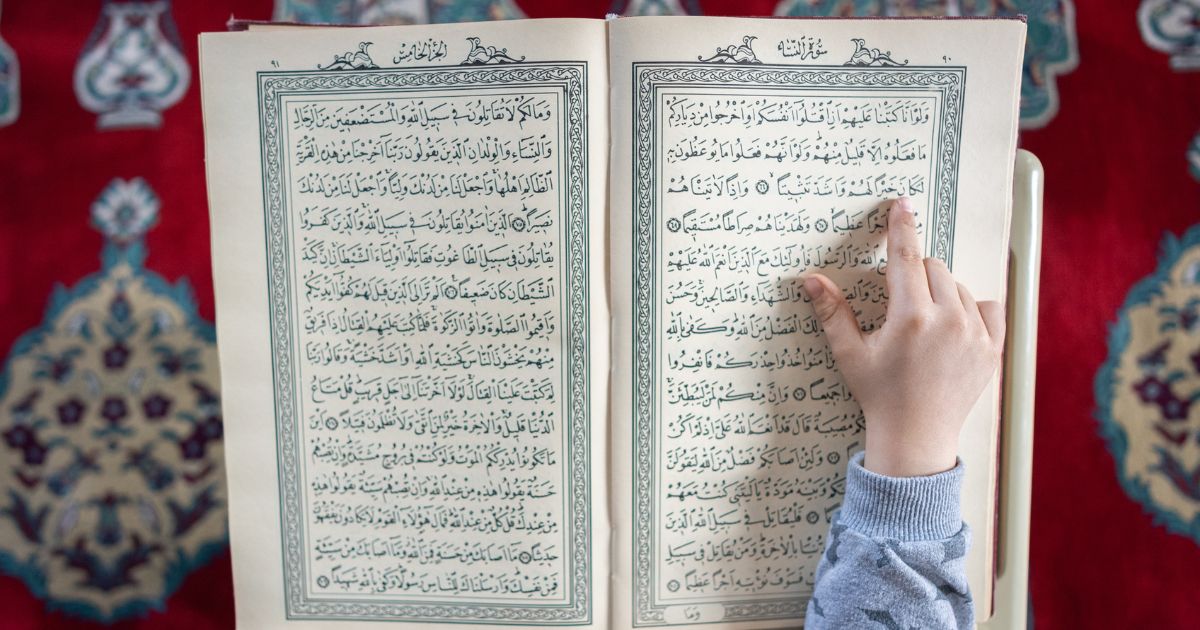 سُورَةُ النِّسَاءِ
٩٠
وَلَوْ اَنَّا كَتَبْنَا عَلَيْهِمْ اَنِ اقْتُلُوا اَنْفُسَكُمْ اَوِ اخْرُجُوا مِنْ دِيَارِكُمْ
مَا فَعَلُوهُ اِلَّا قَلِيلٌ مِنْهُمْ وَلَوْ اَنَّهُمْ فَعَلُوا مَا يُوعَظُونَ بِهِ
لَكَانَ خَيْرًا لَهُمْ وَاَشَدَّ تَثْبِيتًا ٦٦ وَاِذًا لَاٰتَيْنَاهُمْ
اَجْرًا عَظِيمًا ٦٧ وَلَهَدَيْنَاهُمْ صِرَاطًا مُسْتَقِيمًا ٦٨
اللّٰهَ وَالرَّسُولَ فَاُولٰئِكَ مَعَ الَّذِينَ اَنْعَمَ اللّٰهُ عَلَيْهِمْ
وَالشُّهَدَاءِ وَالصَّالِحِينَ وَحَسُنَ
الْفَضْلُ مِنَ اللّٰهِ وَكَفٰى بِاللّٰهِ
خُذُوا حِذْرَكُمْ فَانْفِرُوا
جَمِيعًا ٧١ وَاِنَّ مِنْكُمْ لَمَنْ لَيُبَطِّئَنَّ
مُصِيبَةٌ قَالَ قَدْ اَنْعَمَ اللّٰهُ عَلَيَّ اِذْ لَمْ اَكُنْ
وَلَئِنْ اَصَابَكُمْ فَضْلٌ مِنَ اللّٰهِ لَيَقُولَنَّ
وَبَيْنَهُ مَوَدَّةٌ يَا لَيْتَنِي كُنْتُ مَعَهُمْ
فَلْيُقَاتِلْ فِي سَبِيلِ اللّٰهِ الَّذِينَ
بِالْاٰخِرَةِ وَمَنْ يُقَاتِلْ فِي سَبِيلِ
فَسَوْفَ نُؤْتِيهِ اَجْرًا عَظِيمًا ٧٤
وَمَا
اَلْجُزْءُ الْخَامِسُ
٩١
وَمَا لَكُمْ لَا تُقَاتِلُونَ فِي سَبِيلِ اللّٰهِ وَالْمُسْتَضْعَفِينَ مِنَ الرِّجَالِ
وَالنِّسَاءِ وَالْوِلْدَانِ الَّذِينَ يَقُولُونَ رَبَّنَا اَخْرِجْنَا مِنْ هٰذِهِ الْقَرْيَةِ
الظَّالِمِ اَهْلُهَا وَاجْعَلْ لَنَا مِنْ لَدُنْكَ وَلِيًّا وَاجْعَلْ لَنَا مِنْ لَدُنْكَ
نَصِيرًا ٧٥ اَلَّذِينَ اٰمَنُوا يُقَاتِلُونَ فِي سَبِيلِ اللّٰهِ وَالَّذِينَ كَفَرُوا
يُقَاتِلُونَ فِي سَبِيلِ الطَّاغُوتِ فَقَاتِلُوا اَوْلِيَاءَ الشَّيْطَانِ اِنَّ كَيْدَ
الشَّيْطَانِ كَانَ ضَعِيفًا ٧٦ اَلَمْ تَرَ اِلَى الَّذِينَ قِيلَ لَهُمْ كُفُّوا اَيْدِيَكُمْ
وَاَقِيمُوا الصَّلٰوةَ وَاٰتُوا الزَّكٰوةَ فَلَمَّا كُتِبَ عَلَيْهِمُ الْقِتَالُ اِذَا فَرِيقٌ
مِنْهُمْ يَخْشَوْنَ النَّاسَ كَخَشْيَةِ اللّٰهِ اَوْ اَشَدَّ خَشْيَةً وَقَالُوا رَبَّنَا
لِمَ كَتَبْتَ عَلَيْنَا الْقِتَالَ لَوْلَا اَخَّرْتَنَا اِلٰى اَجَلٍ قَرِيبٍ قُلْ مَتَاعُ
الدُّنْيَا قَلِيلٌ وَالْاٰخِرَةُ خَيْرٌ لِمَنِ اتَّقٰى وَلَا تُظْلَمُونَ فَتِيلًا ٧٧ اَيْنَ
مَا تَكُونُوا يُدْرِكْكُمُ الْمَوْتُ وَلَوْ كُنْتُمْ فِي بُرُوجٍ مُشَيَّدَةٍ وَاِنْ تُصِبْهُمْ
حَسَنَةٌ يَقُولُوا هٰذِهِ مِنْ عِنْدِ اللّٰهِ وَاِنْ تُصِبْهُمْ سَيِّئَةٌ يَقُولُوا هٰذِهِ
مِنْ عِنْدِكَ قُلْ كُلٌّ مِنْ عِنْدِ اللّٰهِ فَمَالِ هٰؤُلَاءِ الْقَوْمِ لَا يَكَادُونَ يَفْقَهُونَ
حَدِيثًا ٧٨ مَا اَصَابَكَ مِنْ حَسَنَةٍ فَمِنَ اللّٰهِ وَمَا اَصَابَكَ مِنْ سَيِّئَةٍ
فَمِنْ نَفْسِكَ وَاَرْسَلْنَاكَ لِلنَّاسِ رَسُولًا وَكَفٰى بِاللّٰهِ شَهِيدًا ٧٩